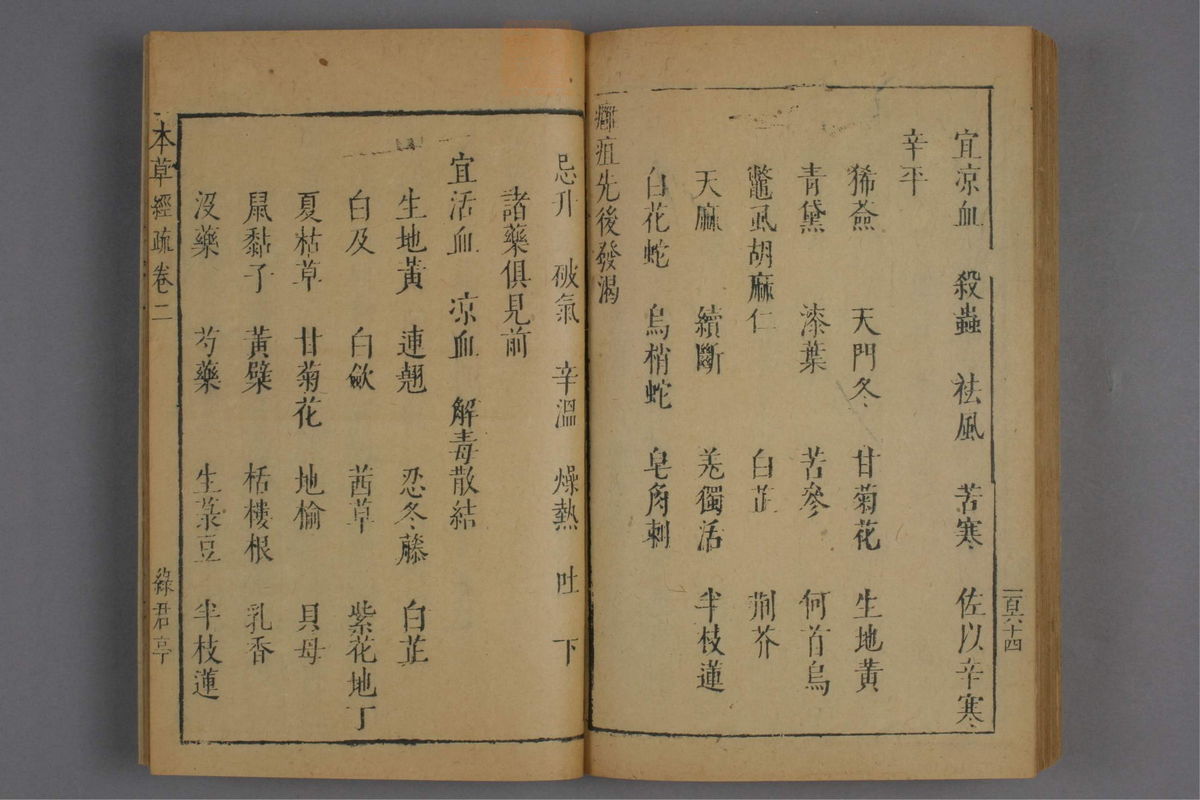 一百六十四
宜凉血　殺蟲　祛風　苦寒　佐以辛寒
辛平
豨薟　天門冬　甘菊花　生地黄
青黛　漆葉　苦參　何首烏
鼈虱胡麻仁　白芷　荆芥
天麻　續斷　羌獨活　半枝蓮
白花蛇　烏梢蛇　皂角刺
癰疽先後發渴
忌升　破氣　辛溫　燥熱　吐　下
諸藥俱見前
宜活血　凉血　解毒散結
生地黃　連翹　忍冬藤　白芷
白及　白歛　茜草　紫花地丁
夏枯草　甘菊花　地榆　貝母
鼠黏子　黃檗　栝樓根　乳香
沒藥　芍藥　生菉豆　半枝蓮
本草經疏卷二　綠君亭